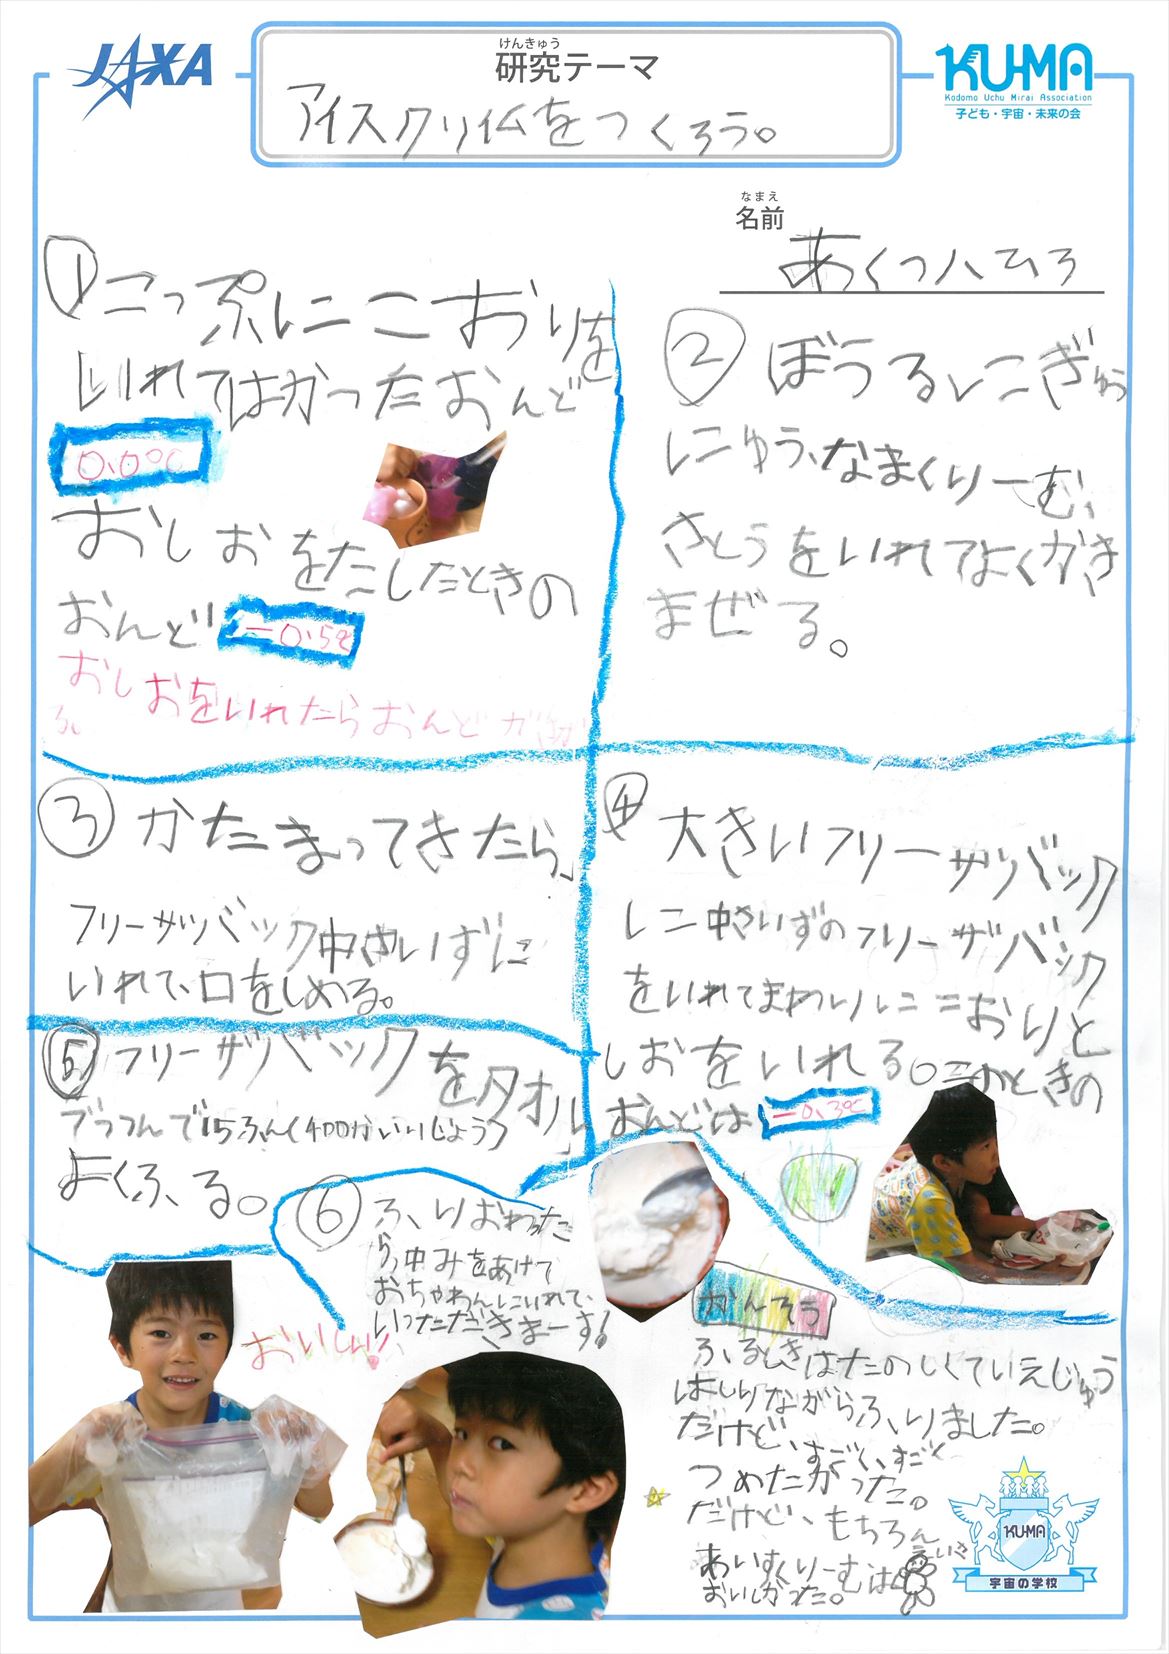 JAXA
けんきゅう
研究テーマ
アイスクリイムをつくろう。
KU-MA
Kodomo Uchu Mirai Association
子ども・宇宙・未来の会
なまえ
名前
①こっぷにこおりを
いれてはかったおんど
0.0℃
おしおをたしたときの
おんど -0.5℃
おしおをいれたらおんどが
る。
②ぼうるにぎゅう
にゅう、なまくりーむ、
さとうをいれてよくかき
まぜる。
③かたまってきたら、
フリーザツバック中さいずに
いれて、口をしめる。
④大きいフリーザツバック
に中さいずのフリーザバック
をいれてまわりにこおりと
しおをいれる。このときの
おんどは -0.3℃
⑤フリーザツバックをタオル
でつつんで15ふん(400かいいじょう)
よくふる。
⑥ふりおわった
ら、中みをあけて
おちゃわんにいれて、
いっただきまーす!
おいしい!!
かんそう
ふるときはたのしくていえじゅう
はしりながらふりました。
だけど、すごく、すごく
つめたかった。
だけど、もちろん
あいすくりーむは
おいしかった。
KU-MA
宇宙の学校